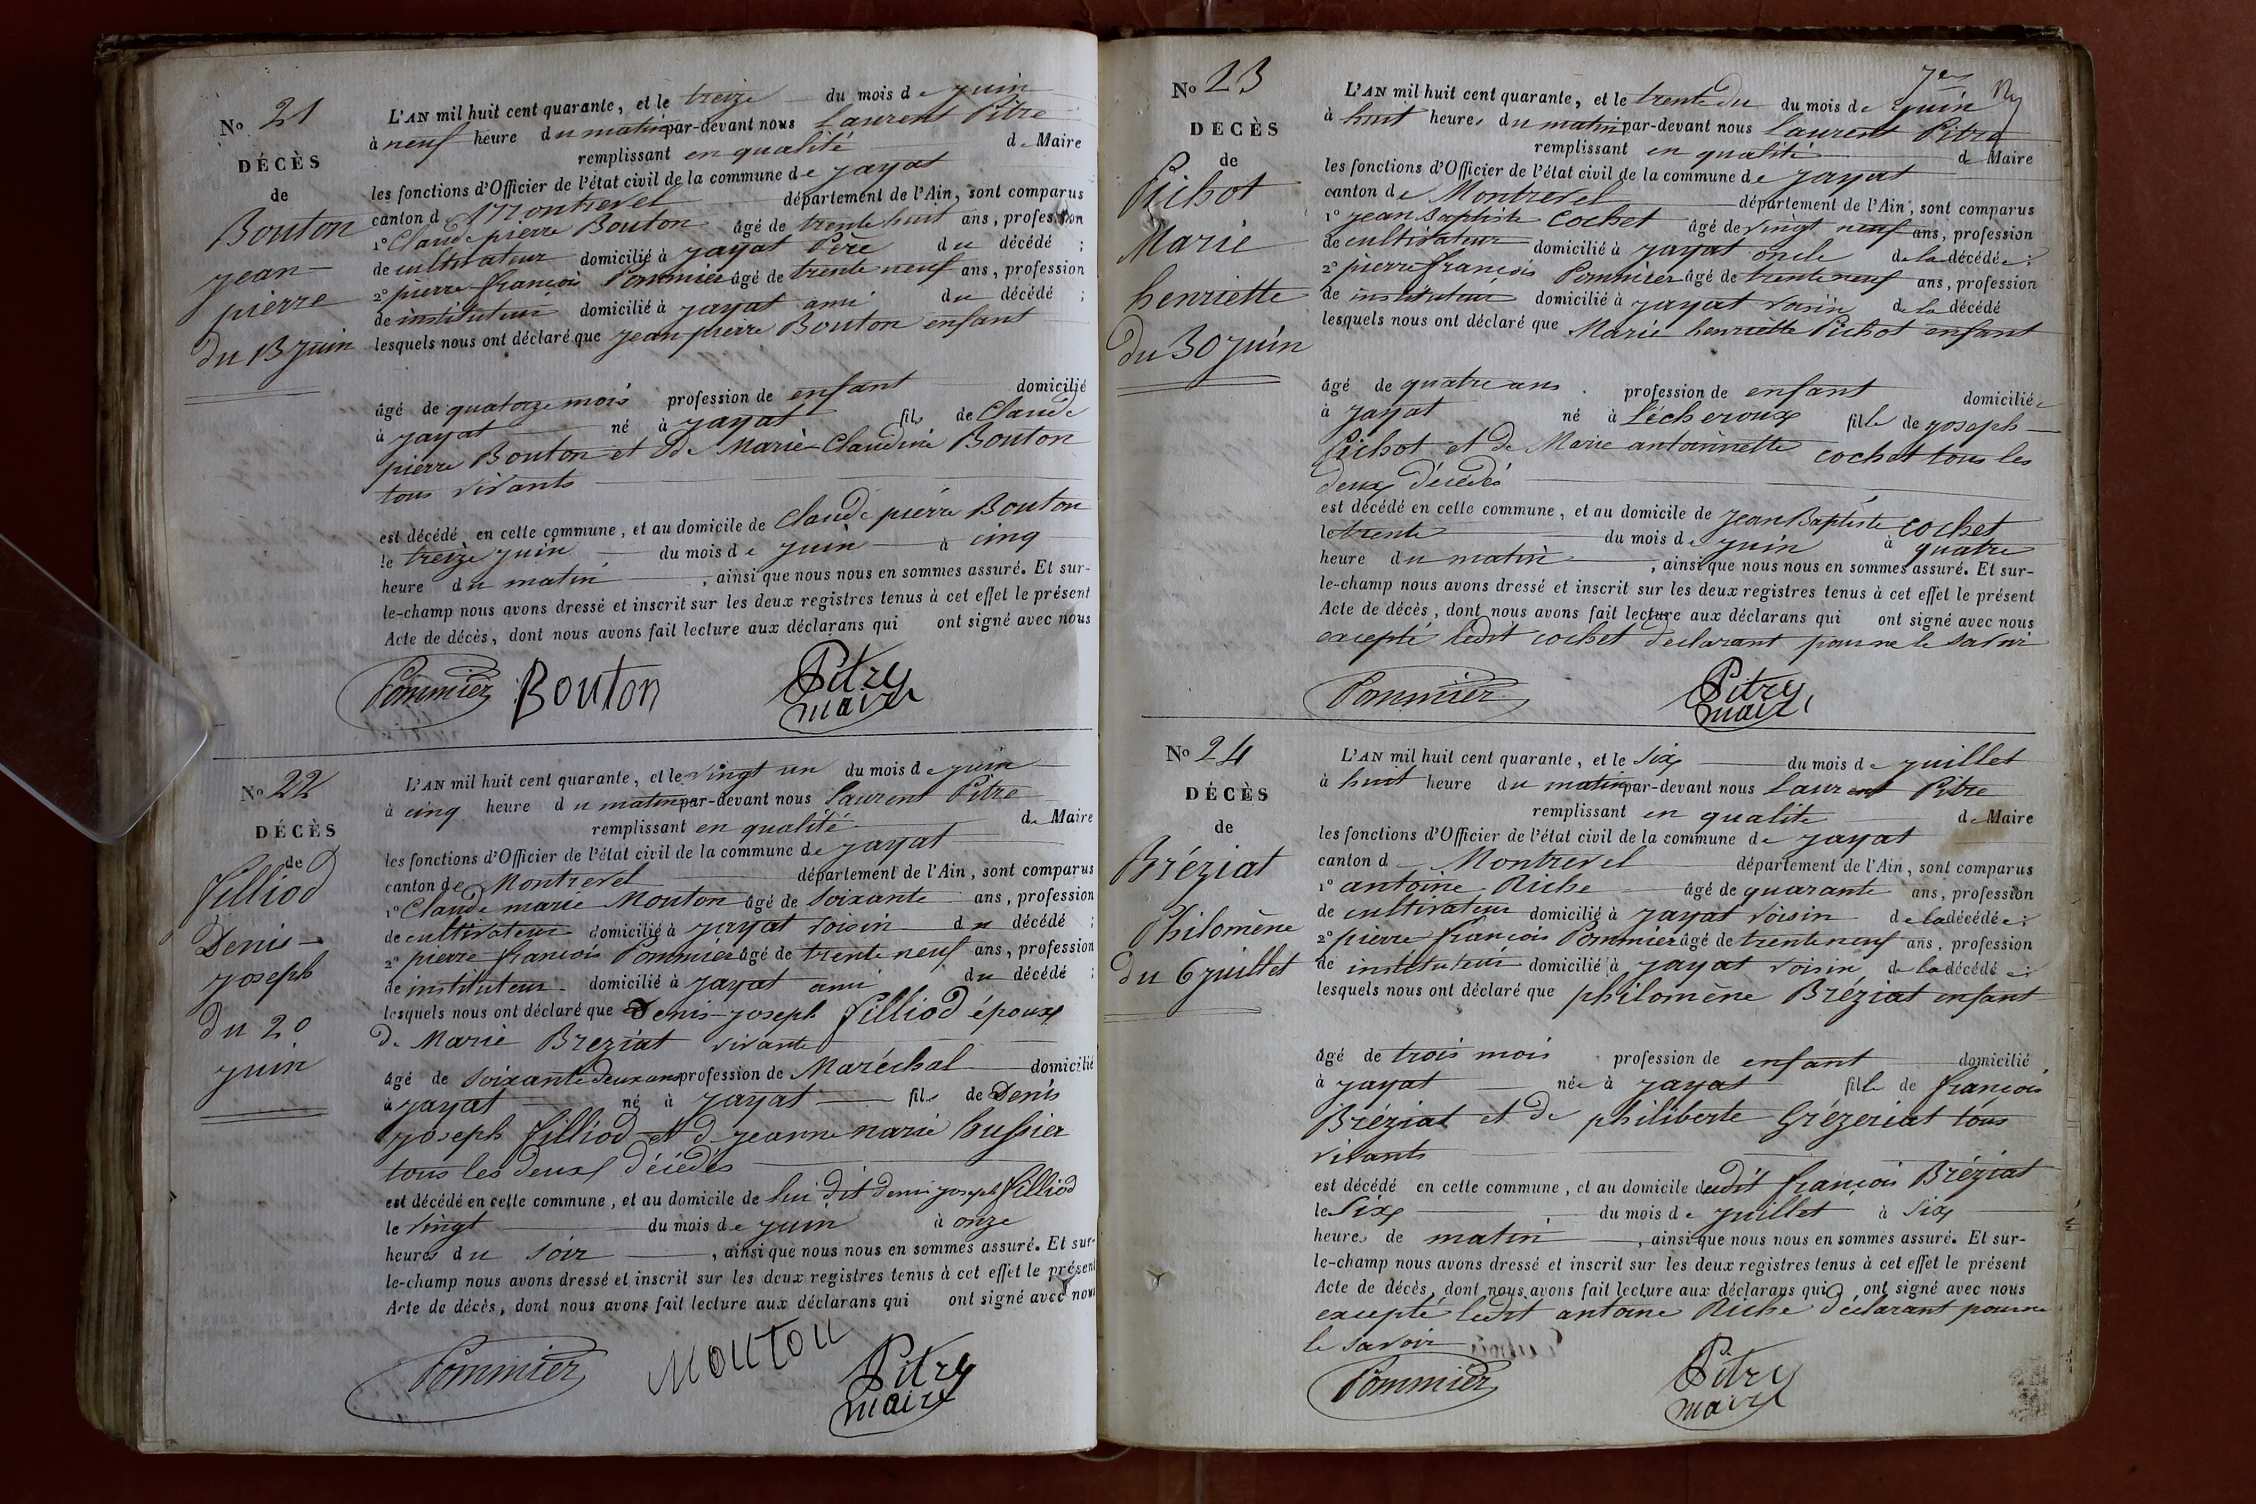 No 21
DÉCÈS
de
Bouton
jean-
pierre
du 13 juin
L'AN mil huit cent quarante, et le treize du mois de juin
à neuf heure du matin par-devant nous Laurent Pitre
remplissant en qualité de Maire
les fonctions d'Officier de l'état civil de la commune de jayat
canton d Montrevel département de l'Ain, sont comparus
1o Claude pierre Bouton âgé de trente huit ans, profession
de cultivateur domicilié à jayat Père du décédé ;
2o pierre françois Pommier âgé de trente neuf ans, profession
de instituteur domicilié à jayat ami du décédé ;
lesquels nous ont déclaré que jean pierre Bouton enfant
âgé de quatorze mois profession de enfant domicilié
à jayat né à jayat fils de Claude
pierre Bouton et de Marie Claudine Bouton
tous vivants
est décédé en cette commune, et au domicile de Claude pierre Bouton
le treize juin du mois de juin à cinq
heure du matin , ainsi que nous nous en sommes assuré. Et sur-
le-champ nous avons dressé et inscrit sur les deux registres tenus à cet effet le présent
Acte de décès, dont nous avons fait lecture aux déclarans qui ont signé avec nous
Pommier Bouton Pitre
maire
No 22
DÉCÈS
de
Filliod
Denis-
joseph
du 20
juin
L'AN mil huit cent quarante, et le vingt un du mois de juin
à cinq heure du matin par-devant nous Laurent Pitre
remplissant en qualité de Maire
les fonctions d'Officier de l'état civil de la commune de jayat
canton de Montrevel département de l'Ain, sont comparus
1o Claude marie Mouton âgé de soixante ans, profession
de cultivateur domicilié à jayat voisin du décédé ;
2o pierre françois Pommier âgé de trente neuf ans, profession
de instituteur domicilié à jayat ami du décédé ;
lesquels nous ont déclaré que Denis-joseph Filliod époux
de Marie Breziat vivante
âgé de soixante deux ans profession de Maréchal domicilié
à jayat né à jayat fils de Denis
joseph Filliod et d jeanne marie hussier
tous les deux décédés
est décédé en cette commune, et au domicile de lui dit denis joseph Filliod
le vingt du mois de juin à onze
heures du soir , ainsi que nous nous en sommes assuré. Et sur-
le-champ nous avons dressé et inscrit sur les deux registres tenus à cet effet le présent
Acte de décès, dont nous avons fait lecture aux déclarans qui ont signé avec nous
Pommier Mouton Pitre
maire
No 23
DÉCÈS
de
Pichot
Marie
henriette
du 30 juin
L'AN mil huit cent quarante, et le trente du du mois de juin
à huit heures du matin par-devant nous Laurent Pitre
remplissant en qualité de Maire
les fonctions d'Officier de l'état civil de la commune de jayat
canton de Montrevel département de l'Ain, sont comparus
1o jean Baptiste Cochet âgé de vingt neuf ans, profession
de cultivateur domicilié à jayat oncle de la décédée ;
2o pierre françois Pommier âgé de trente neuf ans, profession
de instituteur domicilié à jayat voisin de la décédé
lesquels nous ont déclaré que Marie henriette Pichot enfant
âgé de quatre ans profession de enfant domiciliée
à jayat né à Lécheroux fille de joseph
Pichot et de Marie antoinnette cochet tous les
deux décédés
est décédé en cette commune, et au domicile de jean Baptiste cochet
le trente du mois de juin à quatre
heure du matin , ainsi que nous nous en sommes assuré. Et sur-
le-champ nous avons dressé et inscrit sur les deux registres tenus à cet effet le présent
Acte de décès, dont nous avons fait lecture aux déclarans qui ont signé avec nous
excepté ledit cochet déclarant pour ne le savoir
Pommier Pitre
maire
No 24
DÉCÈS
de
Bréziat
Philomène
du 6 juillet
L'AN mil huit cent quarante, et le six du mois de juillet
à huit heure du matin par-devant nous Laurent Pitre
remplissant en qualité de Maire
les fonctions d'Officier de l'état civil de la commune de jayat
canton d Montrevel département de l'Ain, sont comparus
1o antoine Riche âgé de quarante ans, profession
de cultivateur domicilié à jayat voisin de la décédée ;
2o pierre françois Pommier âgé de trente neuf ans, profession
de instituteur domicilié à jayat voisin de la décédée ;
lesquels nous ont déclaré que philomène Bréziat enfant
âgé de trois mois profession de enfant domicilié
à jayat née à jayat fille de françois
Bréziat et de philiberte Grézeriat tous
vivants
est décédé en cette commune, et au domicile dudit françois Bréziat
le six du mois de juillet à six
heures de matin , ainsi que nous nous en sommes assuré. Et sur-
le-champ nous avons dressé et inscrit sur les deux registres tenus à cet effet le présent
Acte de décès, dont nous avons fait lecture aux déclarans qui ont signé avec nous
excepté ledit antoine Riche déclarant pour ne
le savoir
Pommier Pitre
maire